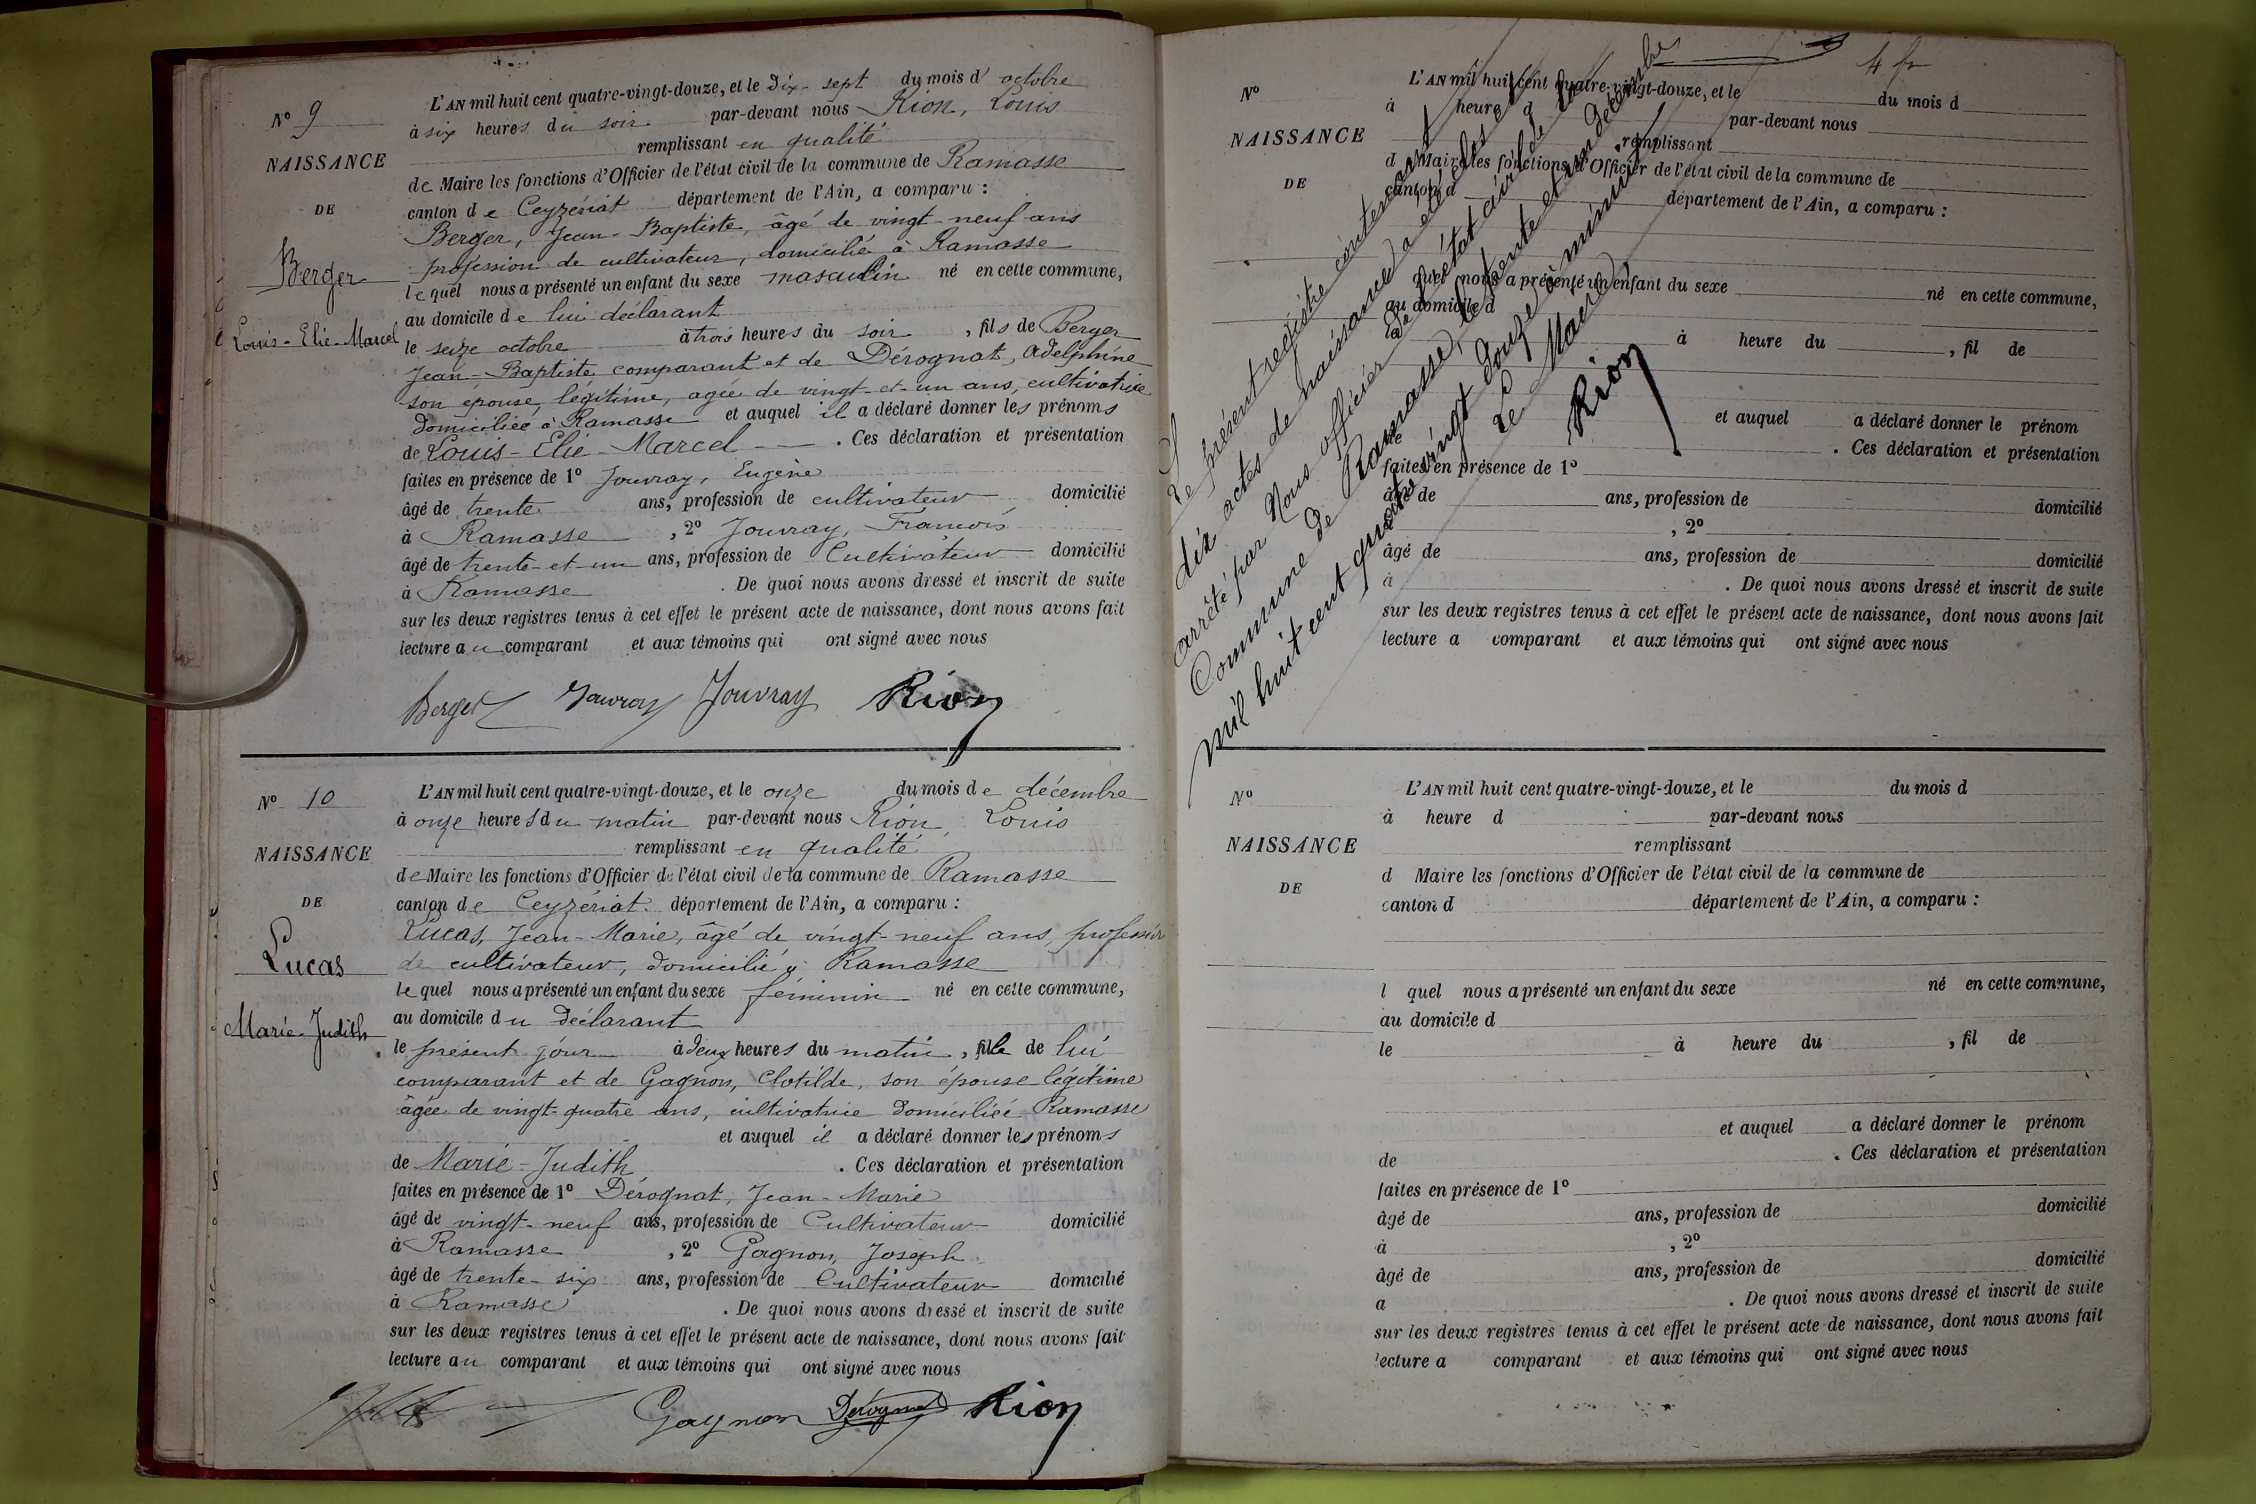 N° 9
NAISSANCE
DE
Berger
Louis-Elie-Marcel
L'AN mil huit cent quatre-vingt-douze, et le dix-sept du mois d'octobre
à six heures du soir par-devant nous Rion, Louis
remplissant en qualité
de Maire les fonctions d'Officier de l'état civil de la commune de Ramasse
canton de Ceyzériat département de l'Ain, a comparu :
Berger, Jean-Baptiste, âgé de vingt-neuf ans
profession de cultivateur, domicilié à Ramasse
lequel nous a présenté un enfant du sexe masculin né en cette commune,
au domicile de lui déclarant
le seize octobre à trois heures du soir, fils de Berger
Jean-Baptiste comparant et de Dérognat, Adelphine
son épouse légitime, agée de vingt-et-un ans, cultivatrice
domiciliée à Ramasse et auquel il a déclaré donner les prénoms
de Louis-Elie-Marcel. Ces déclaration et présentation
faites en présence de 1° Jouvray, Eugène
âgé de trente ans, profession de cultivateur domicilié
à Ramasse, 2° Jouvray, François
âgé de trente-et-un ans, profession de Cultivateur domicilié
à Ramasse. De quoi nous avons dressé et inscrit de suite
sur les deux registres tenus à cet effet le présent acte de naissance, dont nous avons fait
lecture au comparant et aux témoins qui ont signé avec nous
Berger Jouvray Jouvray Rion
N° 10
NAISSANCE
DE
Lucas
Marie-Judith
L'AN mil huit cent quatre-vingt-douze, et le onze du mois de décembre
à onze heures du matin par-devant nous Rion, Louis
remplissant en qualité
de Maire les fonctions d'Officier de l'état civil de la commune de Ramasse
canton de Ceyzériat département de l'Ain, a comparu :
Lucas, Jean-Marie, âgé de vingt-neuf ans, profession
de cultivateur, domicilié à Ramasse
lequel nous a présenté un enfant du sexe féminin né en cette commune,
au domicile du déclarant
le présent jour à deux heures du matin, fille de lui
comparant et de Gagnon, Clotilde, son épouse légitime
âgée de vingt-quatre ans, cultivatrice domiciliée Ramasse
et auquel il a déclaré donner les prénoms
de Marie-Judith. Ces déclaration et présentation
faites en présence de 1° Dérognat, Jean-Marie
âgé de vingt-neuf ans, profession de Cultivateur domicilié
à Ramasse, 2° Gagnon, Joseph
âgé de trente-six ans, profession de Cultivateur domicilié
à Ramasse. De quoi nous avons dressé et inscrit de suite
sur les deux registres tenus à cet effet le présent acte de naissance, dont nous avons fait
lecture au comparant et aux témoins qui ont signé avec nous
Gagnon Dérognat Rion
4 fr
N°
NAISSANCE
DE
L'AN mil huit cent quatre-vingt-douze, et le du mois d
à heure d par-devant nous
remplissant
d Maire les fonctions d'Officier de l'état civil de la commune de
canton d département de l'Ain, a comparu :
quel nous a présenté un enfant du sexe né en cette commune,
au domicile d
le à heure du , fil de
et auquel a déclaré donner le prénom
de . Ces déclaration et présentation
faites en présence de 1°
âgé de ans, profession de domicilié
à , 2°
âgé de ans, profession de domicilié
à . De quoi nous avons dressé et inscrit de suite
sur les deux registres tenus à cet effet le présent acte de naissance, dont nous avons fait
lecture a comparant et aux témoins qui ont signé avec nous
Le présent registre contenant
dix actes de naissance a été clos et
arrêté par Nous officier de l'état civil de la
Commune de Ramasse, le trente et un décembre
mil huit cent quatre vingt douze à minuit
Le Maire
Rion
N°
NAISSANCE
DE
L'AN mil huit cent quatre-vingt-douze, et le du mois d
à heure d par-devant nous
remplissant
d Maire les fonctions d'Officier de l'état civil de la commune de
canton d département de l'Ain, a comparu :
l quel nous a présenté un enfant du sexe né en cette commune,
au domicile d
le à heure du , fil de
et auquel a déclaré donner le prénom
de . Ces déclaration et présentation
faites en présence de 1°
âgé de ans, profession de domicilié
à , 2°
âgé de ans, profession de domicilié
a . De quoi nous avons dressé et inscrit de suite
sur les deux registres tenus à cet effet le présent acte de naissance, dont nous avons fait
lecture a comparant et aux témoins qui ont signé avec nous